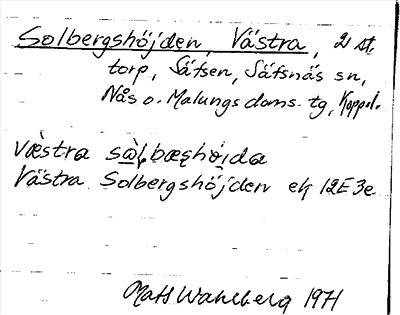 Solbergshöjden, Västra, 2 st.
torp, Säfsen, Säfsnäs sn,
Nås o. Malungs doms. tg, Koppbl.
væ̀stra sɷ̀lbæshöi̯da
Västra Solbergshöjden ek 12E3e
Mats Wahlberg 1971